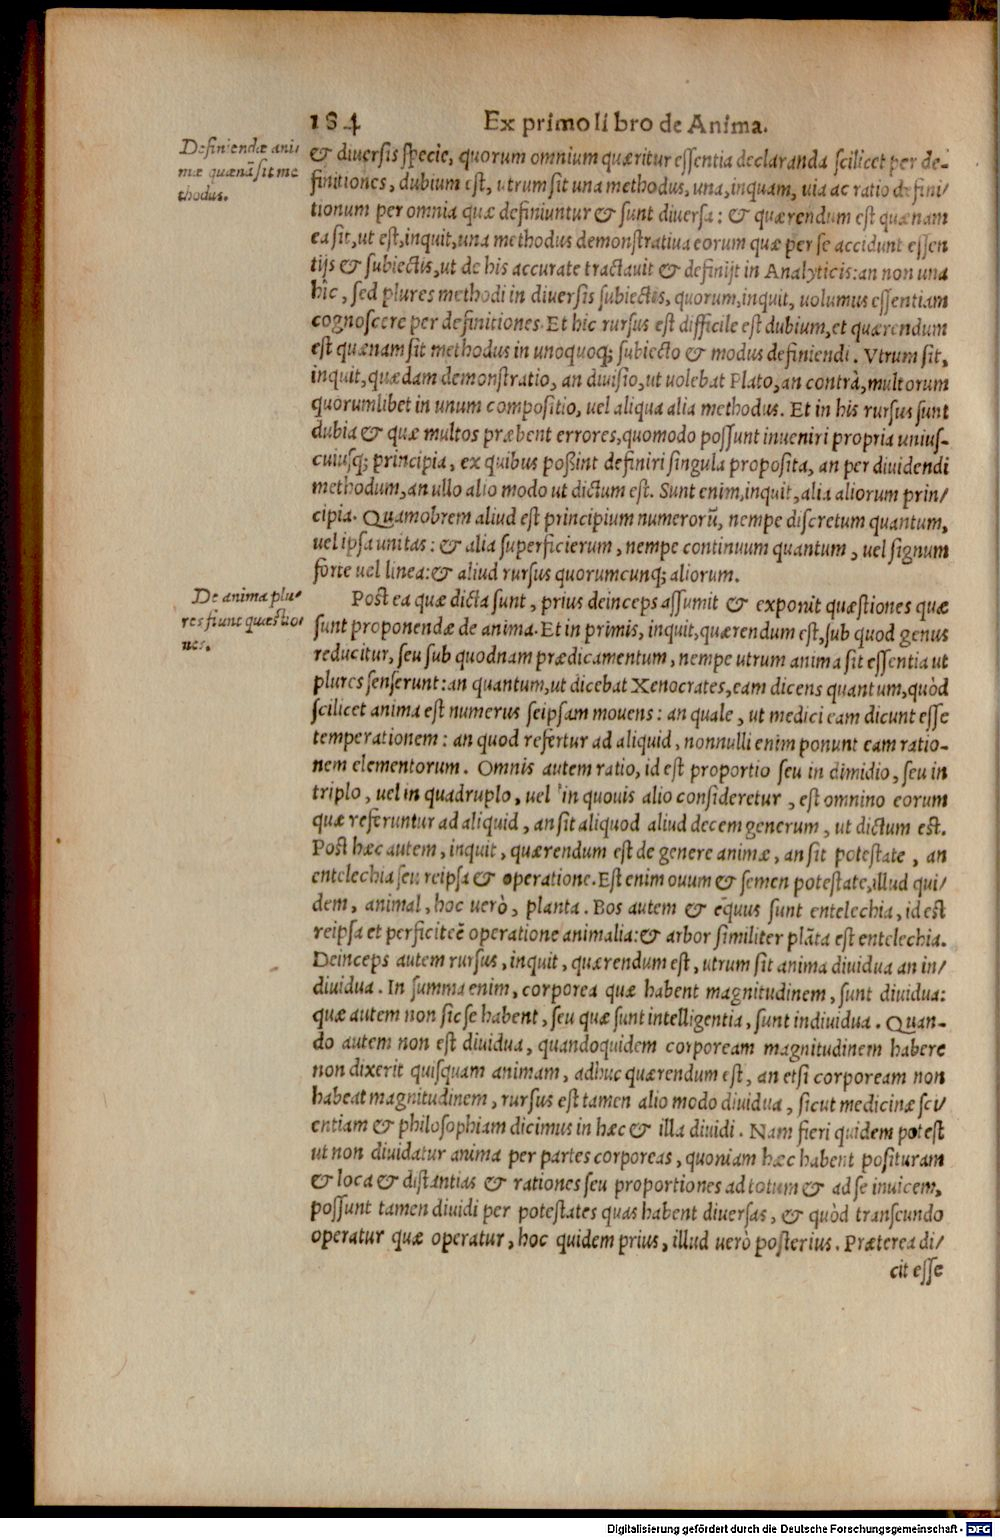 184 Ex primo libro de Anima.
Definiendæ ani
mæ quænā sit me
thodus.
& diuersis specie, quorum omnium quæritur essentia declaranda scilicet per de-
finitiones, dubium est, utrum sit una methodus, una, inquam, uia ac ratio defini/
tionum per omnia quæ definiuntur & sunt diuersa: & quærendum est quænam
ea sit, ut est, inquit, una methodus demonstratiua eorum quæ per se accidunt essen
tijs & subiectis, ut de his accurate tractauit & definijt in Analyticis: an non una
hîc, sed plures methodi in diuersis subiectis, quorum, inquit, uolumus essentiam
cognoscere per definitiones. Et hic rursus est difficile est dubium, et quærendum
est quænam sit methodus in unoquoq; subiecto & modus definiendi. Vtrum sit,
inquit, quædam demonstratio, an diuisio, ut uolebat Plato, an contrà, multorum
quorumlibet in unum compositio, uel aliqua alia methodus. Et in his rursus sunt
dubia & quæ multos præbent errores, quomodo possunt inueniri propria unius-
cuiusq; principia, ex quibus poßint definiri singula proposita, an per diuidendi
methodum, an ullo alio modo ut dictum est. Sunt enim, inquit, alia aliorum prin/
cipia. Quamobrem aliud est principium numerorũ, nempe discretum quantum,
uel ipsa unitas: & alia superficierum, nempe continuum quantum, uel signum
forte uel linea: & aliud rursus quorumcunq; aliorum.
De anima plu-
res fiunt quæstio
nes.
Post ea quæ dicta sunt, prius deinceps assumit & exponit quæstiones quæ
sunt proponendæ de anima. Et in primis, inquit, quærendum est, sub quod genus
reducitur, seu sub quodnam prædicamentum, nempe utrum anima sit essentia ut
plures senserunt: an quantum, ut dicebat Xenocrates, eam dicens quantum, quòd
scilicet anima est numerus seipsam mouens: an quale, ut medici eam dicunt esse
temperationem: an quod refertur ad aliquid, nonnulli enim ponunt eam ratio-
nem elementorum. Omnis autem ratio, id est proportio seu in dimidio, seu in
triplo, uel in quadruplo, uel in quouis alio consideretur, est omnino eorum
quæ referuntur ad aliquid, an sit aliquod aliud decem generum, ut dictum est.
Post hæc autem, inquit, quærendum est de genere animæ, an sit potestate, an
entelechia seu reipsa & operatione. Est enim ouum & semen potestate, illud qui/
dem, animal, hoc uerò, planta. Bos autem & equus sunt entelechia, id est
reipsa et perficitēē operatione animalia: & arbor similiter plāta est entelechia.
Deinceps autem rursus, inquit, quærendum est, utrum sit anima diuidua an in/
diuidua. In summa enim, corporea quæ habent magnitudinem, sunt diuidua:
quæ autem non sic se habent, seu quæ sunt intelligentia, sunt indiuidua. Quan-
do autem non est diuidua, quandoquidem corpoream magnitudinem habere
non dixerit quisquam animam, adhuc quærendum est, an etsi corpoream non
habeat magnitudinem, rursus est tamen alio modo diuidua, sicut medicinæ sci/
entiam & philosophiam dicimus in hæc & illa diuidi. Nam fieri quidem potest
ut non diuidatur anima per partes corporeas, quoniam hæc habent posituram
& loca & distantias & rationes seu proportiones ad totum & ad se inuicem,
possunt tamen diuidi per potestates quas habent diuersas, & quòd transeundo
operatur quæ operatur, hoc quidem prius, illud uerò posterius. Præterea di/
cit esse
Digitalisierung gefördert durch die Deutsche Forschungsgemeinschaft - DFG